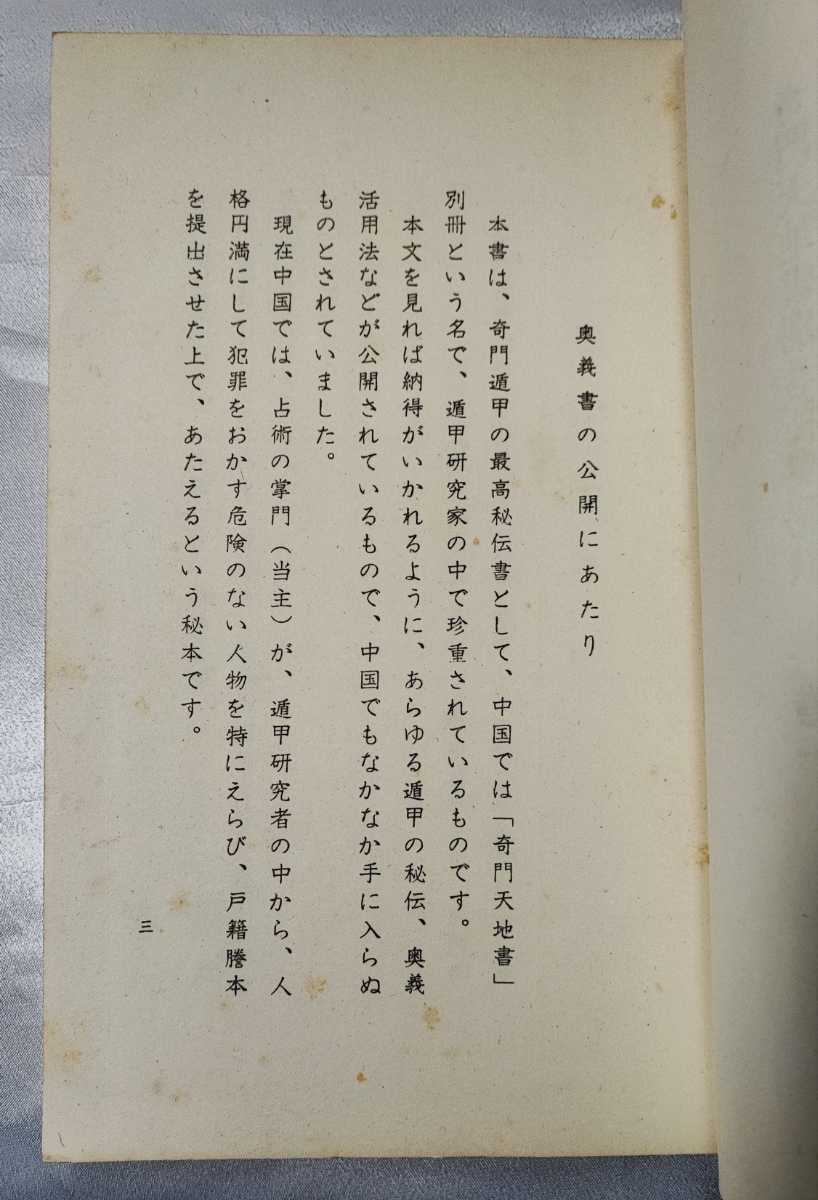 奥義書の公開にあたり
本書は、奇門遁甲の最高秘伝書として、中国では「奇門天地書」
別冊という名で、遁甲研究家の中で珍重されているものです。
本文を見れば納得がいかれるように、あらゆる遁甲の秘伝、奥義
活用法などが公開されているもので、中国でもなかなか手に入らぬ
ものとされていました。
現在中国では、占術の掌門(当主)が、遁甲研究者の中から、人
格円満にして犯罪をおかす危険のない人物を特にえらび、戸籍謄本
を提出させた上で、あたえるという秘本です。
三